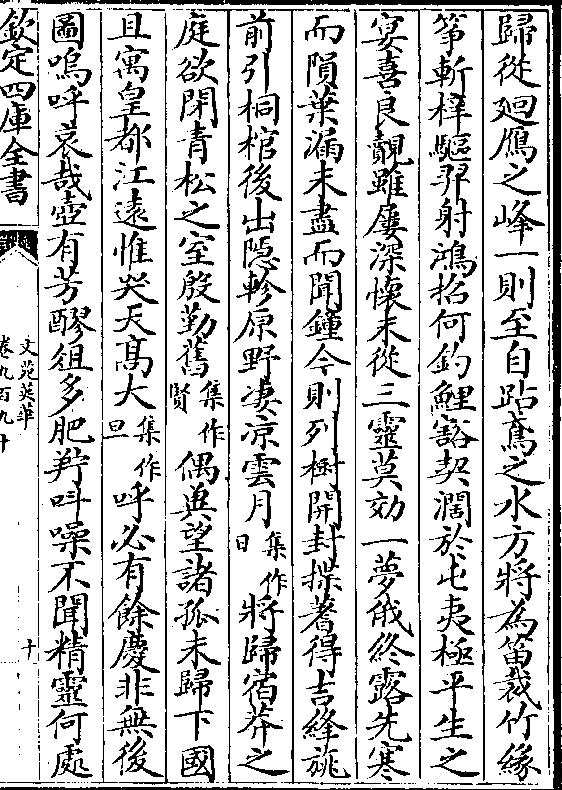 歸從廻鴈之峰一則至自跕鳶之水方將為笛裁竹緣
箏斬梓驅羿射鴻招何釣鯉豁契濶於屯夷極平生之
宴喜良覿雖屢深懷未從三靈莫効一夢俄終露先寒
而隕葉漏未盡而聞鐘今則列樹開封揲蓍得吉絳旐
前引桐棺後出隠軫原野凄凉雲月集作日將歸宿莽之
庭欲閉青松之室殷勤舊集作賢偶與望諸孤未歸下國
且寓皇都江遠惟哭天髙大集作旦呼必有餘慶非無後
圖嗚呼哀哉壺有芳醪俎多肥羜叫噪不聞精靈何處
欽定四庫全書
文苑英華
卷九百九十
十